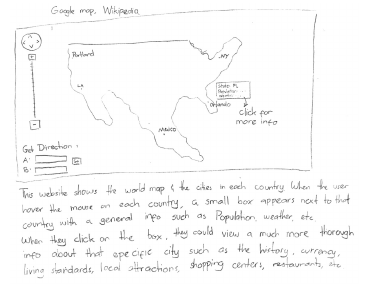 Google map, Wikipedia
Portland
NY
LA
State: FL
Population
Orlando
click for
more info
Mexico
Get Direction :
A:
B:
This website shows the world map & the cities in each country. When the user
hover the mouse on each country, a small box appears next to that
country with a general info such as Population, weather, etc
When they click on the box, they could view a much more thorough
info about that specific city such as the history, currency,
living standards, local attractions, shopping centers, restaurants, etc